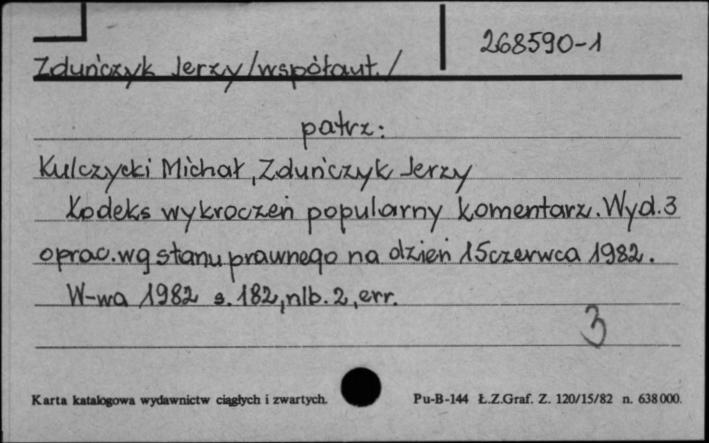 268590-1
Zduńczyk Jerzy /współaut./
patrz:
Kulczycki Michał, Zduńczyk Jerzy
Kodeks wykroczeń popularny komentarz. Wyd. 3
oprac. wg stanu prawnego na dzień 15 czerwca 1982.
W-wa 1982 s. 182, nlb. 2, err.
3
Karta katalogowa wydawnictw ciągłych i zwartych. Pu-B-144 Ł.Z.Graf. Z. 120/15/82 n. 638 000.